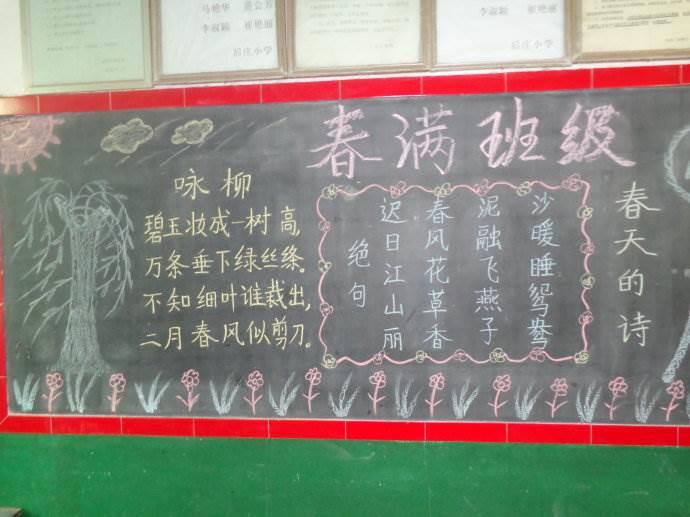 李淑颖 崔艳丽
后庄小学
李淑颖 崔艳丽
后庄小学
春满班级
咏柳
碧玉妆成一树高,
万条垂下绿丝绦。
不知细叶谁裁出,
二月春风似剪刀。
绝句
迟日江山丽
春风花草香
泥融飞燕子
沙暖睡鸳鸯
春天的诗